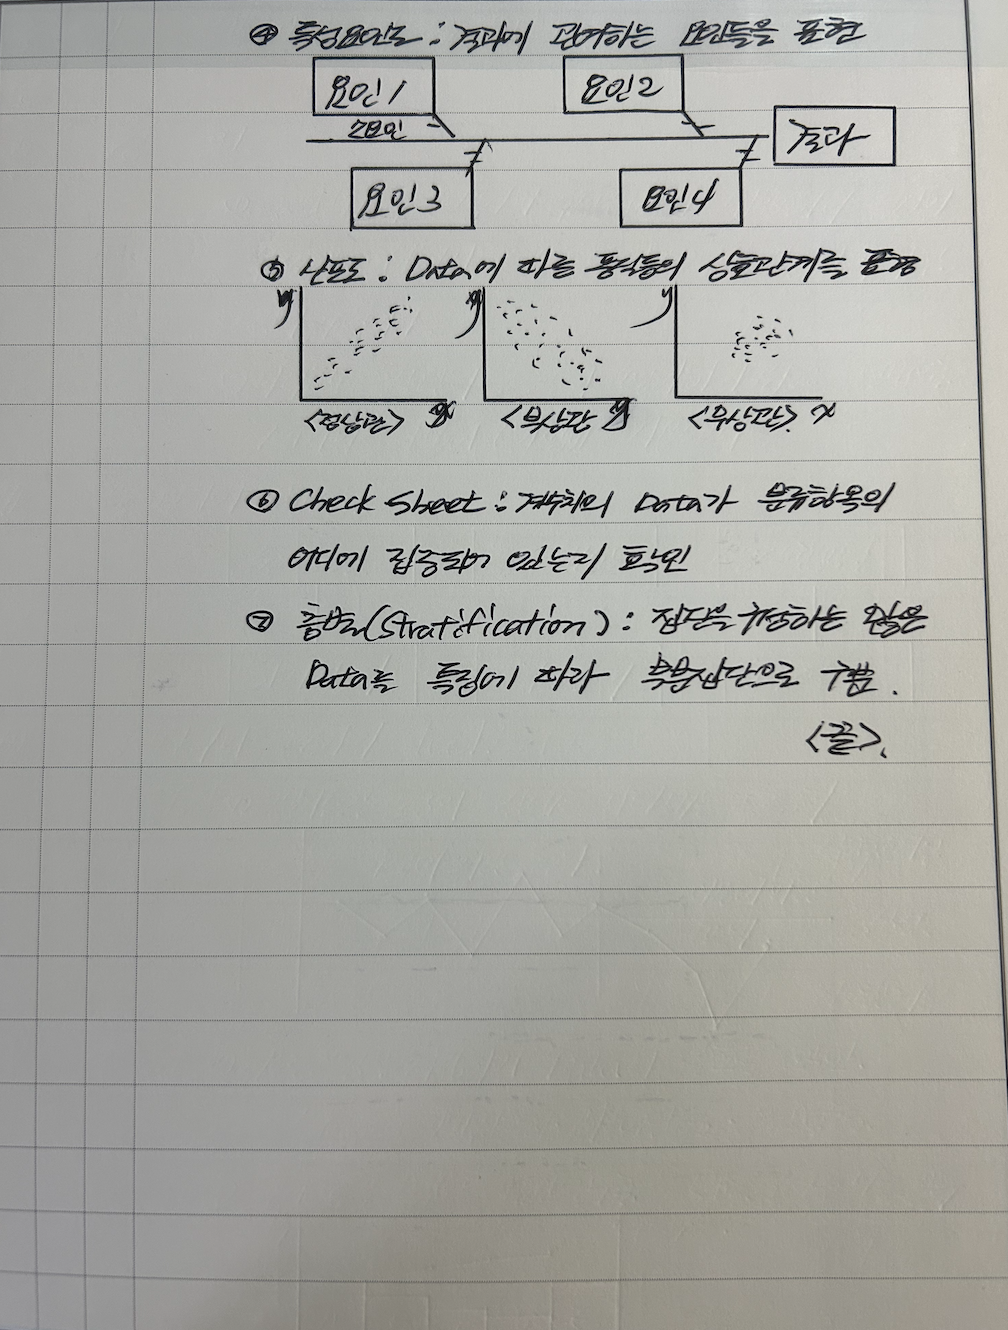 ④ 특성요인도 : 결과에 관여하는 요인들을 표현
요인1 요인2
소요인 결과
요인3 요인4
⑤ 산포도 : Data에 따른 품삭등의 상호관계를 표현
y y y
<정상관> x <부상관 <무상관>. x
⑥ Check Sheet : 계수치의 Data가 분류항목의
어디에 집중되어 있는지 확인
⑦ 층별(Stratification) : 집단을 구성하는 많은
Data를 특징에 따라 부분집단으로 구분.
<끝>.